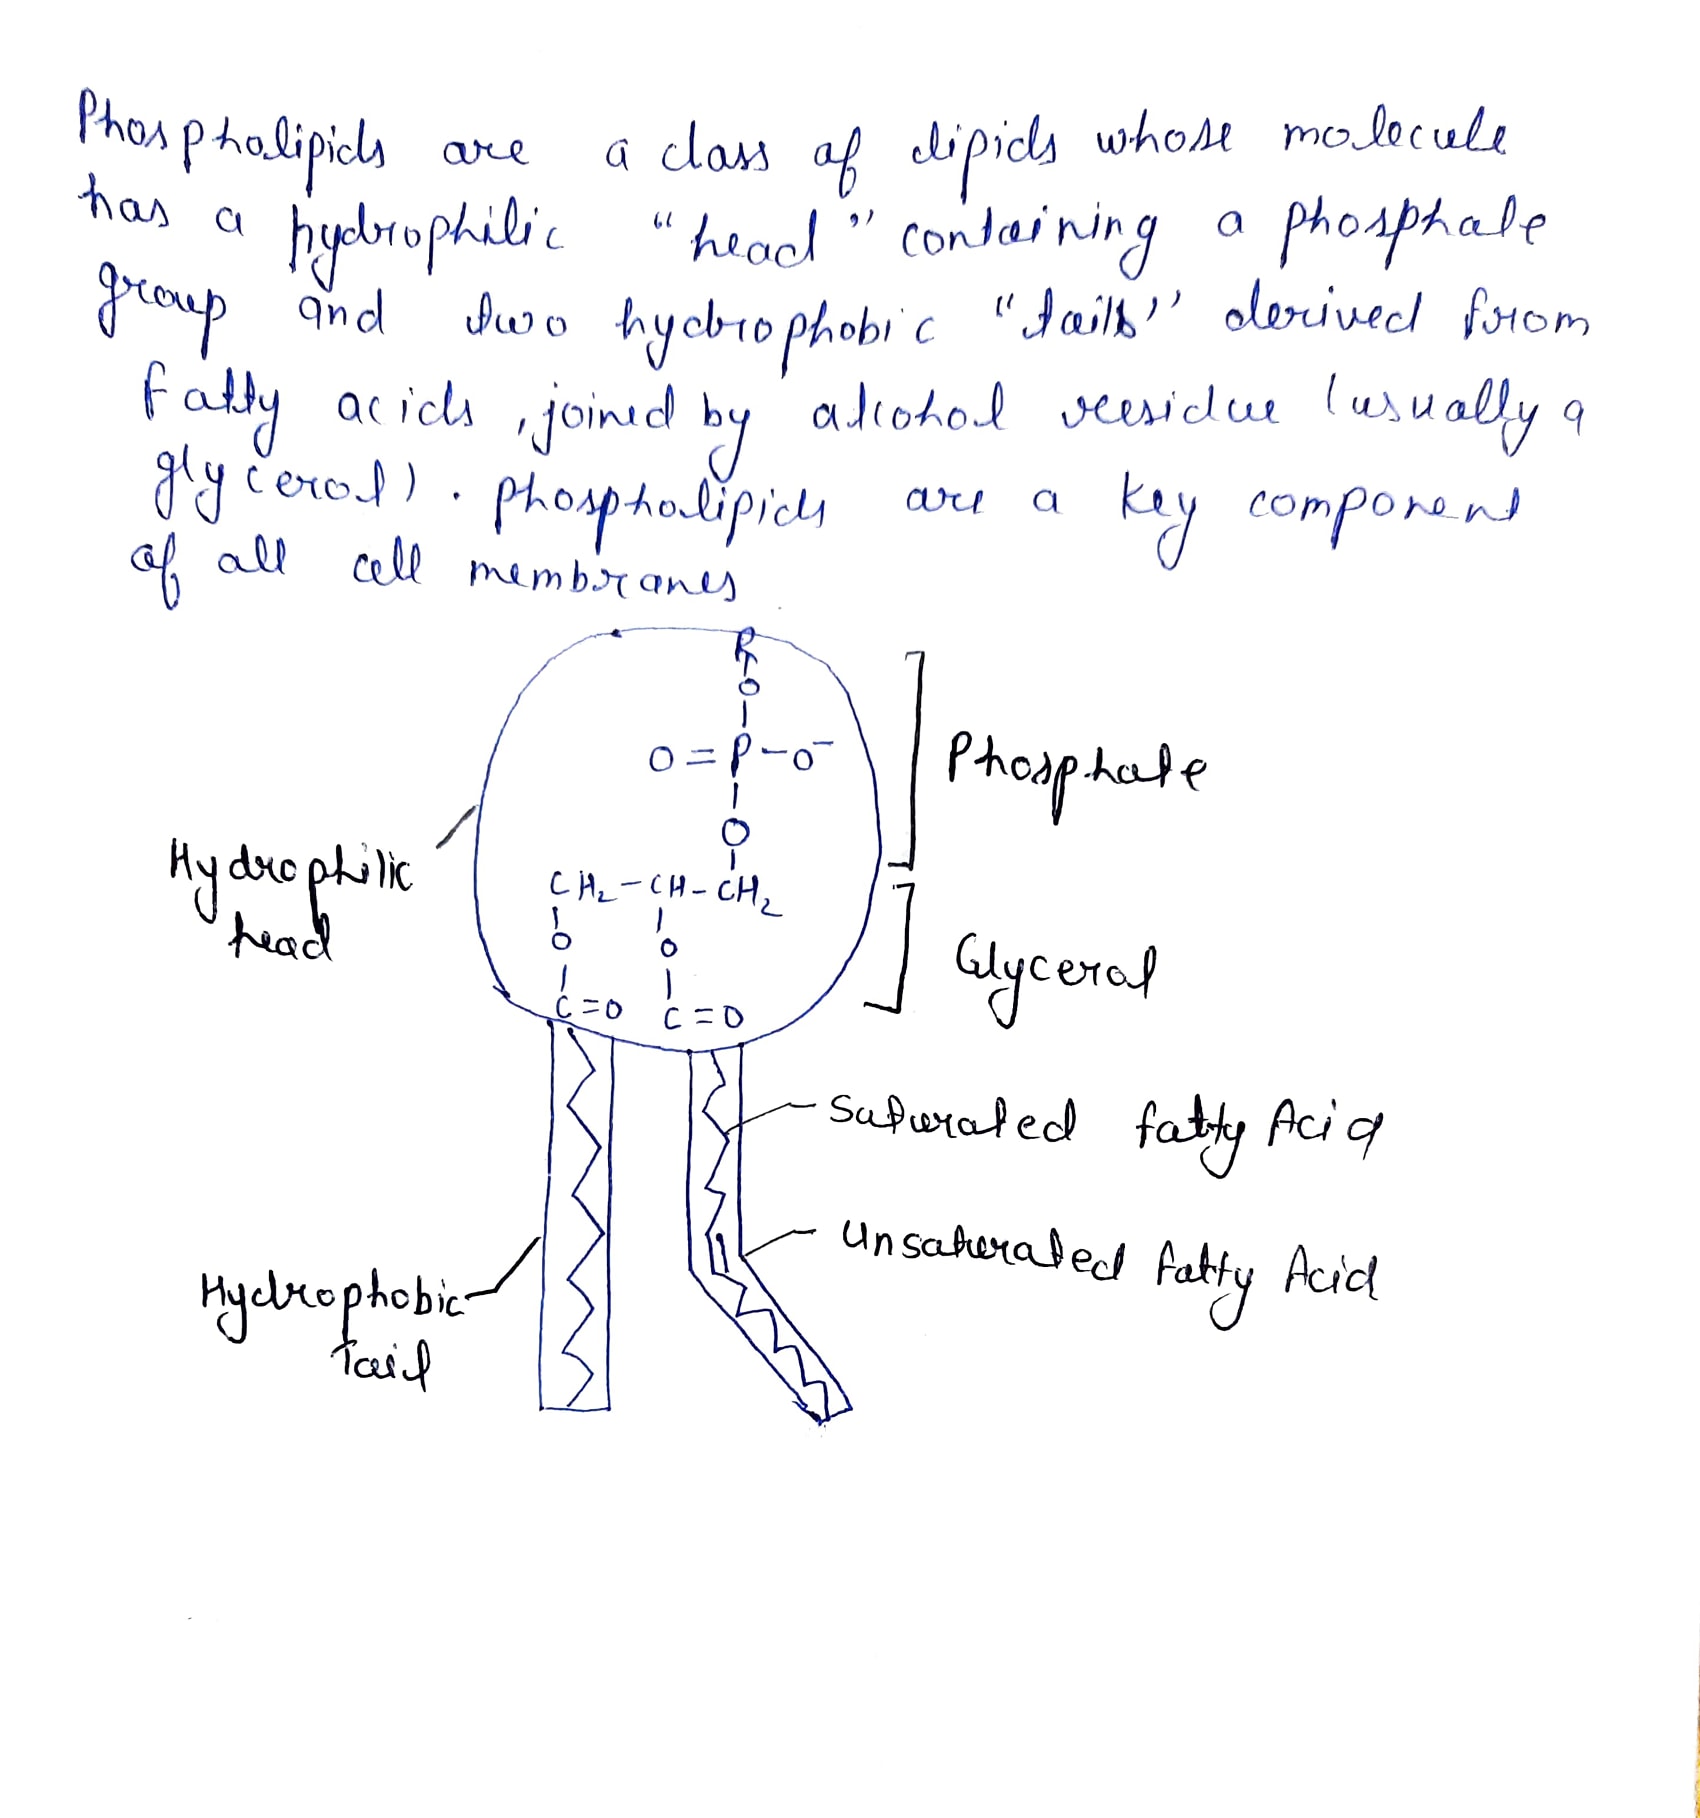 Phospholipids are a class of lipids whose molecule
has a hydrophilic "head" containing a phosphate
group and two hydrophobic "tails" derived from
fatty acids, joined by alcohol residue (usually a
glycerol). Phospholipids are a key component
of all cell membranes
R
O
O = P - O⁻
O
CH₂ - CH - CH₂
O O
C=O C=O
Phosphate
Hydrophilic
head
Glycerol
Saturated fatty Acid
Unsaturated fatty Acid
Hydrophobic
Tail